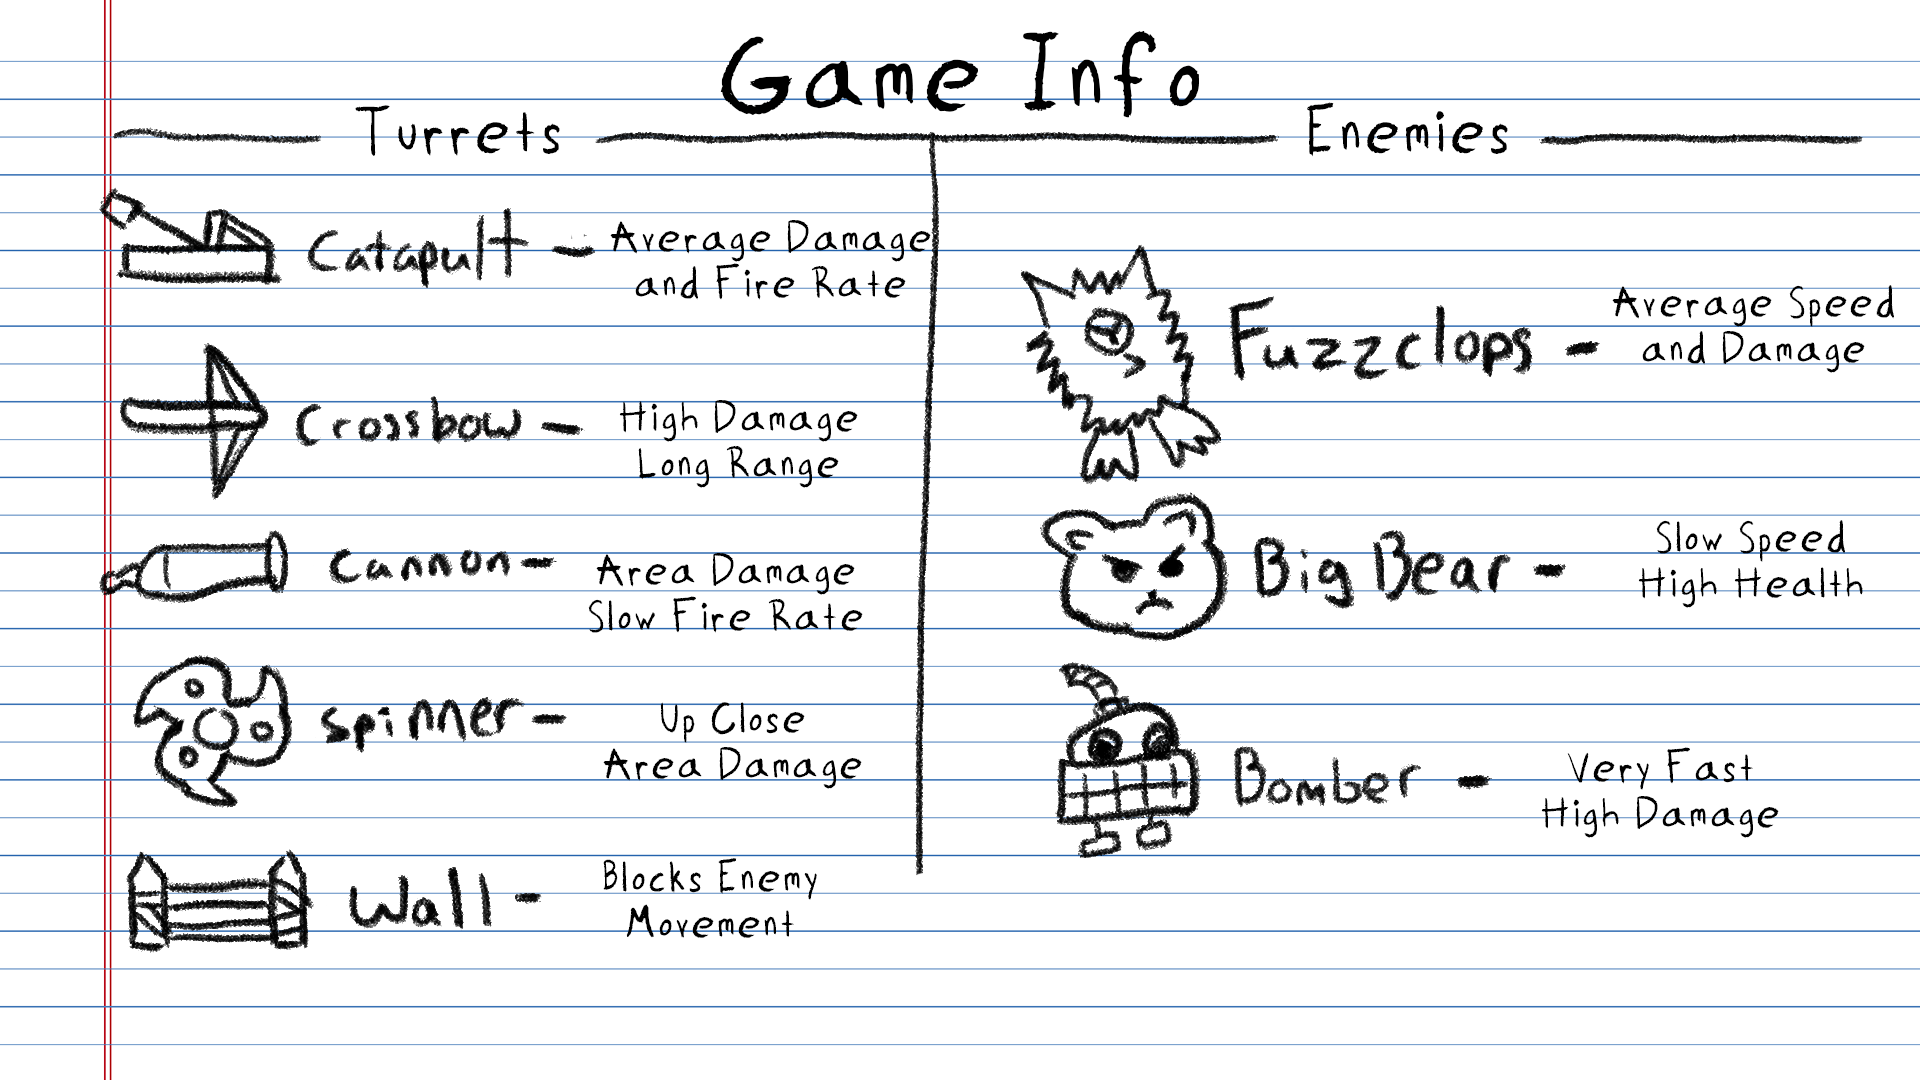 Game Info
Turrets
Catapult - Average Damage
and Fire Rate
Crossbow - High Damage
Long Range
Cannon - Area Damage
Slow Fire Rate
Spinner - Up Close
Area Damage
Wall - Blocks Enemy
Movement
Enemies
Fuzzclops - Average Speed
and Damage
Big Bear - Slow Speed
High Health
Bomber - Very Fast
High Damage